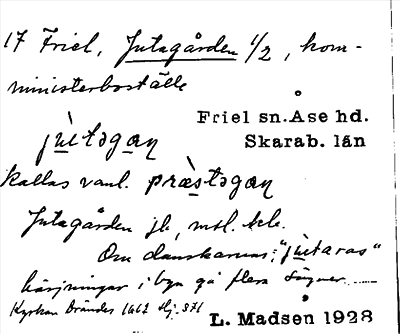 17 Friel, Jutagården 1/2, kom-
ministerboställe
Friel sn. Åse hd.
Skarab. län
jùtəgaɳ
kallas vanl. præ̀stəgaɳ
Jutagården jb, mtl.
Om danskarnas "jùtaras"
härjningar i byn gå flera sägner.
Kyrkan brändes 1662
L. Madsen 1928